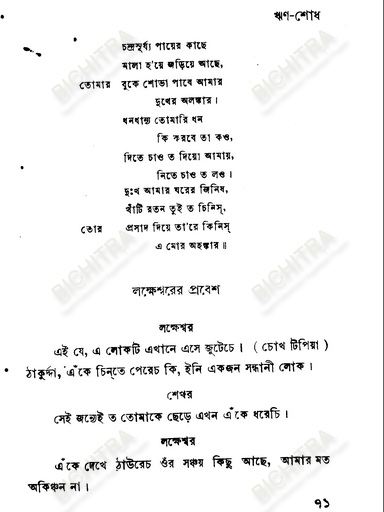 ঋণ-শোধ
চন্দ্রসূর্য্য পায়ের কাছে
মালা হ'য়ে জড়িয়ে আছে,
তোমার বুকে শোভা পাবে আমার
দুখের অলঙ্কার।
ধনধান্য তোমারি ধন
কি করবে তা কও,
দিতে চাও ত দিয়ো আমায়,
নিতে চাও ত লও।
দুঃখ আমার ঘরের জিনিষ,
খাঁটি রতন তুই ত চিনিস্,
তোর প্রসাদ দিয়ে তা'রে কিনিস্
এ মোর অহঙ্কার॥
লক্ষেশ্বরের প্রবেশ
লক্ষেশ্বর
এই যে, এ লোকটি এখানে এসে জুটেচে। (চোখ টিপিয়া)
ঠাকুর্দ্দা, এঁকে চিন্‌তে পেরেচ কি, ইনি একজন সন্ধানী লোক।
শেখর
সেই জন্যেই ত তোমাকে ছেড়ে এখন এঁকে ধরেচি।
লক্ষেশ্বর
এঁকে দেখে ঠাউরেচ ওঁর সঞ্চয় কিছু আছে, আমার মত
অকিঞ্চন না।
৭১
BICHITRA
BICHITRA
BICHITRA
BICHITRA
BICHITRA
BICHITRA